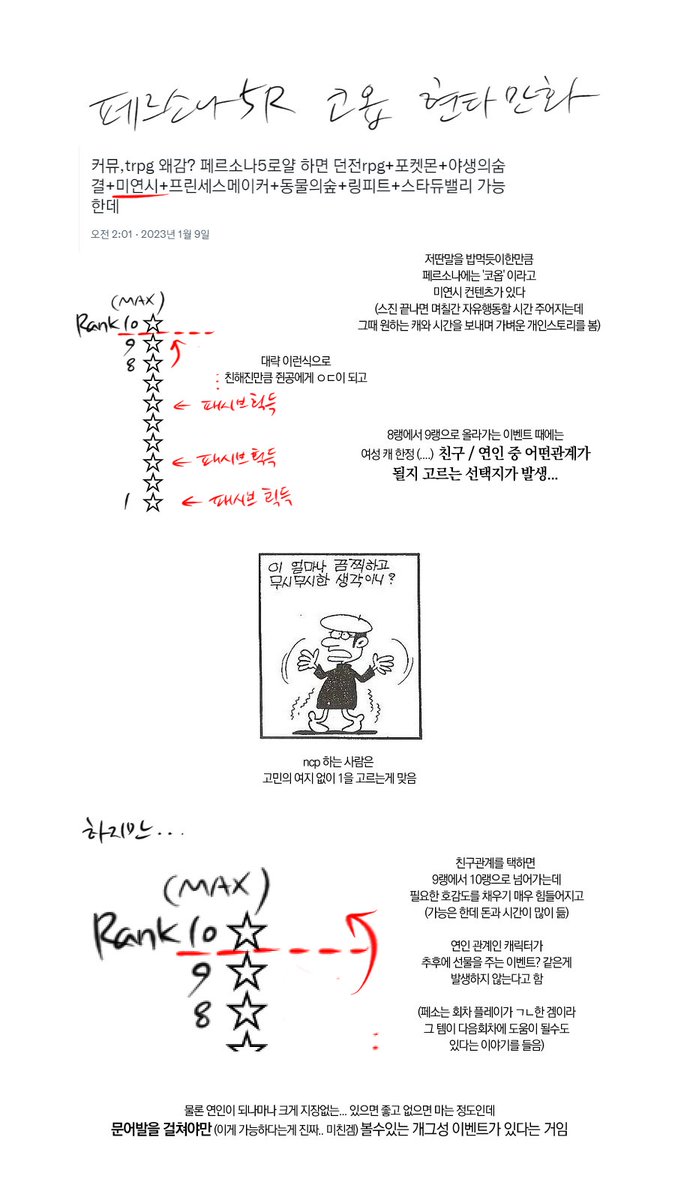 페르소나5R 코옵 현타만화
커뮤,trpg 왜감? 페르소나5로얄 하면 던전rpg+포켓몬+야생의숨
결+미연시+프린세스메이커+동물의숲+링피트+스타듀밸리 가능
한데
오전 2:01 · 2023년 1월 9일
저딴말을 밥먹듯이한만큼
페르소나에는 '코옵' 이라고
미연시 컨텐츠가 있다
(스진 끝나면 며칠간 자유행동할 시간 주어지는데
그때 원하는 캐와 시간을 보내며 가벼운 개인스토리를 봄)
(MAX)
Rank 10 ☆
9 ☆
8 ☆
☆
☆ ← 패시브 획득
☆
☆
☆ ← 패시브 획득
☆
1 ☆ ← 패시브 획득
대략 이런식으로
친해진만큼 쥔공에게 ㅇㄷ이 되고
8랭에서 9랭으로 올라가는 이벤트 때에는
여성 캐 한정 (....) 친구 / 연인 중 어떤관계가
될지 고르는 선택지가 발생...
이 얼마나 끔찍하고
무시무시한 생각이니?
ncp 하는 사람은
고민의 여지 없이 1을 고르는게 맞음
하지만...
(MAX)
Rank 10 ☆
9 ☆
8 ☆
친구관계를 택하면
9랭에서 10랭으로 넘어가는데
필요한 호감도를 채우기 매우 힘들어지고
(가능은 한데 돈과 시간이 많이 듦)
연인 관계인 캐릭터가
추후에 선물을 주는 이벤트? 같은게
발생하지 않는다고 함
(페소는 회차 플레이가 ㄱㄴ한 겜이라
그 템이 다음회차에 도움이 될수도
있다는 이야기를 들음)
물론 연인이 되나마나 크게 지장없는... 있으면 좋고 없으면 마는 정도인데
문어발을 걸쳐야만 (이게 가능하다는게 진짜.. 미친겜) 볼수있는 개그성 이벤트가 있다는 거임